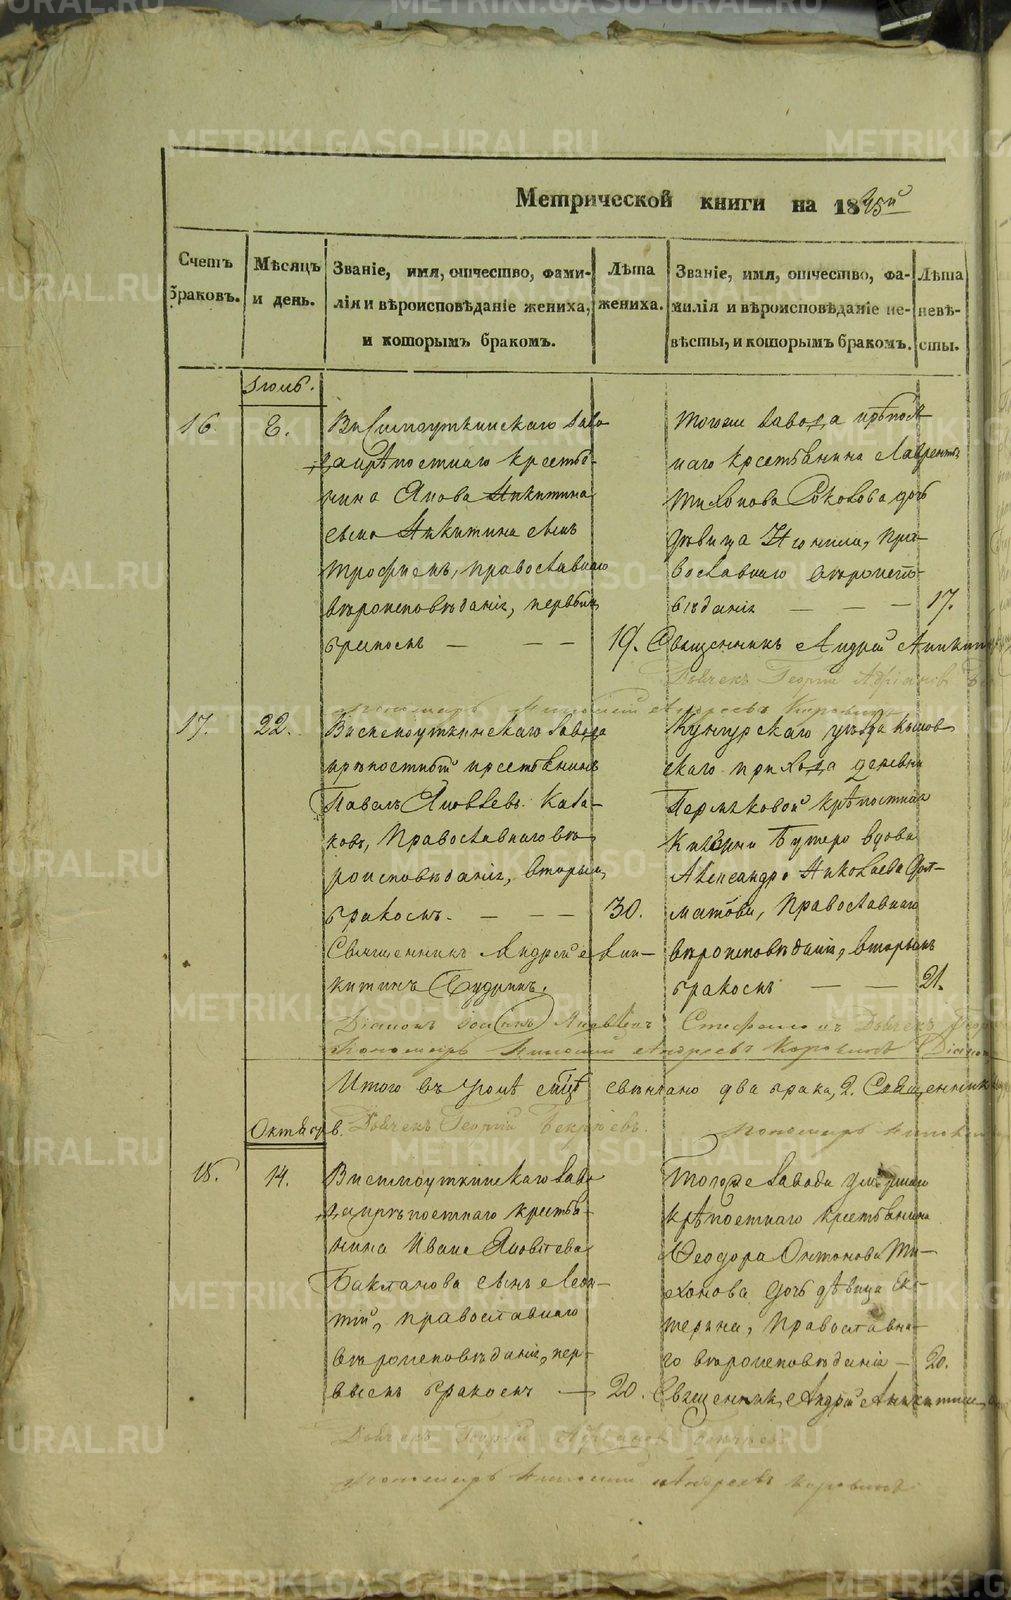 METRIKI.GASO-URAL.RU
Метрической книги на 1845й
Счетъ браковъ.
Мѣсяцъ и день.
Званіе, имя, отчество, фами-
лія и вѣроисповѣданіе жениха,
и которымъ бракомъ.
Лѣта
жениха.
Званіе, имя, отчество, фа-
милія и вѣроисповѣданіе не-
вѣсты, и которымъ бракомъ.
Лѣта
невѣ-
сты.
Іюль.
16
8.
Висимоуткинскаго заво
да крѣпостнаго крестья-
нина Якова Никитина
сынъ
Трофимъ, православнаго
вѣроисповѣданія, первымъ
бракомъ — — —
19.
Тогоже завода крѣпост
наго крестьянина Лаврентія
Тихонова Соколова дочь
дѣвица Неонила, пра-
вославнаго вѣроиспо-
вѣданія — — —
17.
Священникъ Андрей Аникитинъ
Дьячекъ Георгій
Пономарь Андреевъ Коровинъ
17.
22.
Висимоуткинскаго завода
крѣпостный крестьянинъ
Павелъ Яковлевъ Каза-
ковъ, Православнаго вѣ-
роисповѣданія, вторымъ
бракомъ. — — —
30.
Кунгурскаго уѣзда
скаго прихода деревни
крѣпостная
Княгини Бутеро вдова
Александра Николаева
Православнаго
вѣроисповѣданія, вторымъ
бракомъ — —
21.
Священникъ Андрей Ани-
китинъ
Діаконъ
Дьячекъ
Пономарь Андреевъ Коровинъ
Итого въ Іюлѣ мцѣ свѣнчано два брака, 2. Священникъ
Дьячекъ Георгій
Пономарь
Октябрь.
18.
14.
Висимоуткинскаго заво
да крѣпостнаго крестья-
нина Ивана Яковлева
Бакланова сынъ Леон-
тій, православнаго
вѣроисповѣданія, пер-
вымъ бракомъ —
20.
Тогоже завода умершаго
крѣпостнаго крестьянина
Ѳеодора Онтонова Ти-
хонова дочь дѣвица Ека-
терина, Православна-
го вѣроисповѣданія —
20.
Священникъ Андрей Аникитинъ
Дьячекъ Георгій
Пономарь Андреевъ Коровинъ